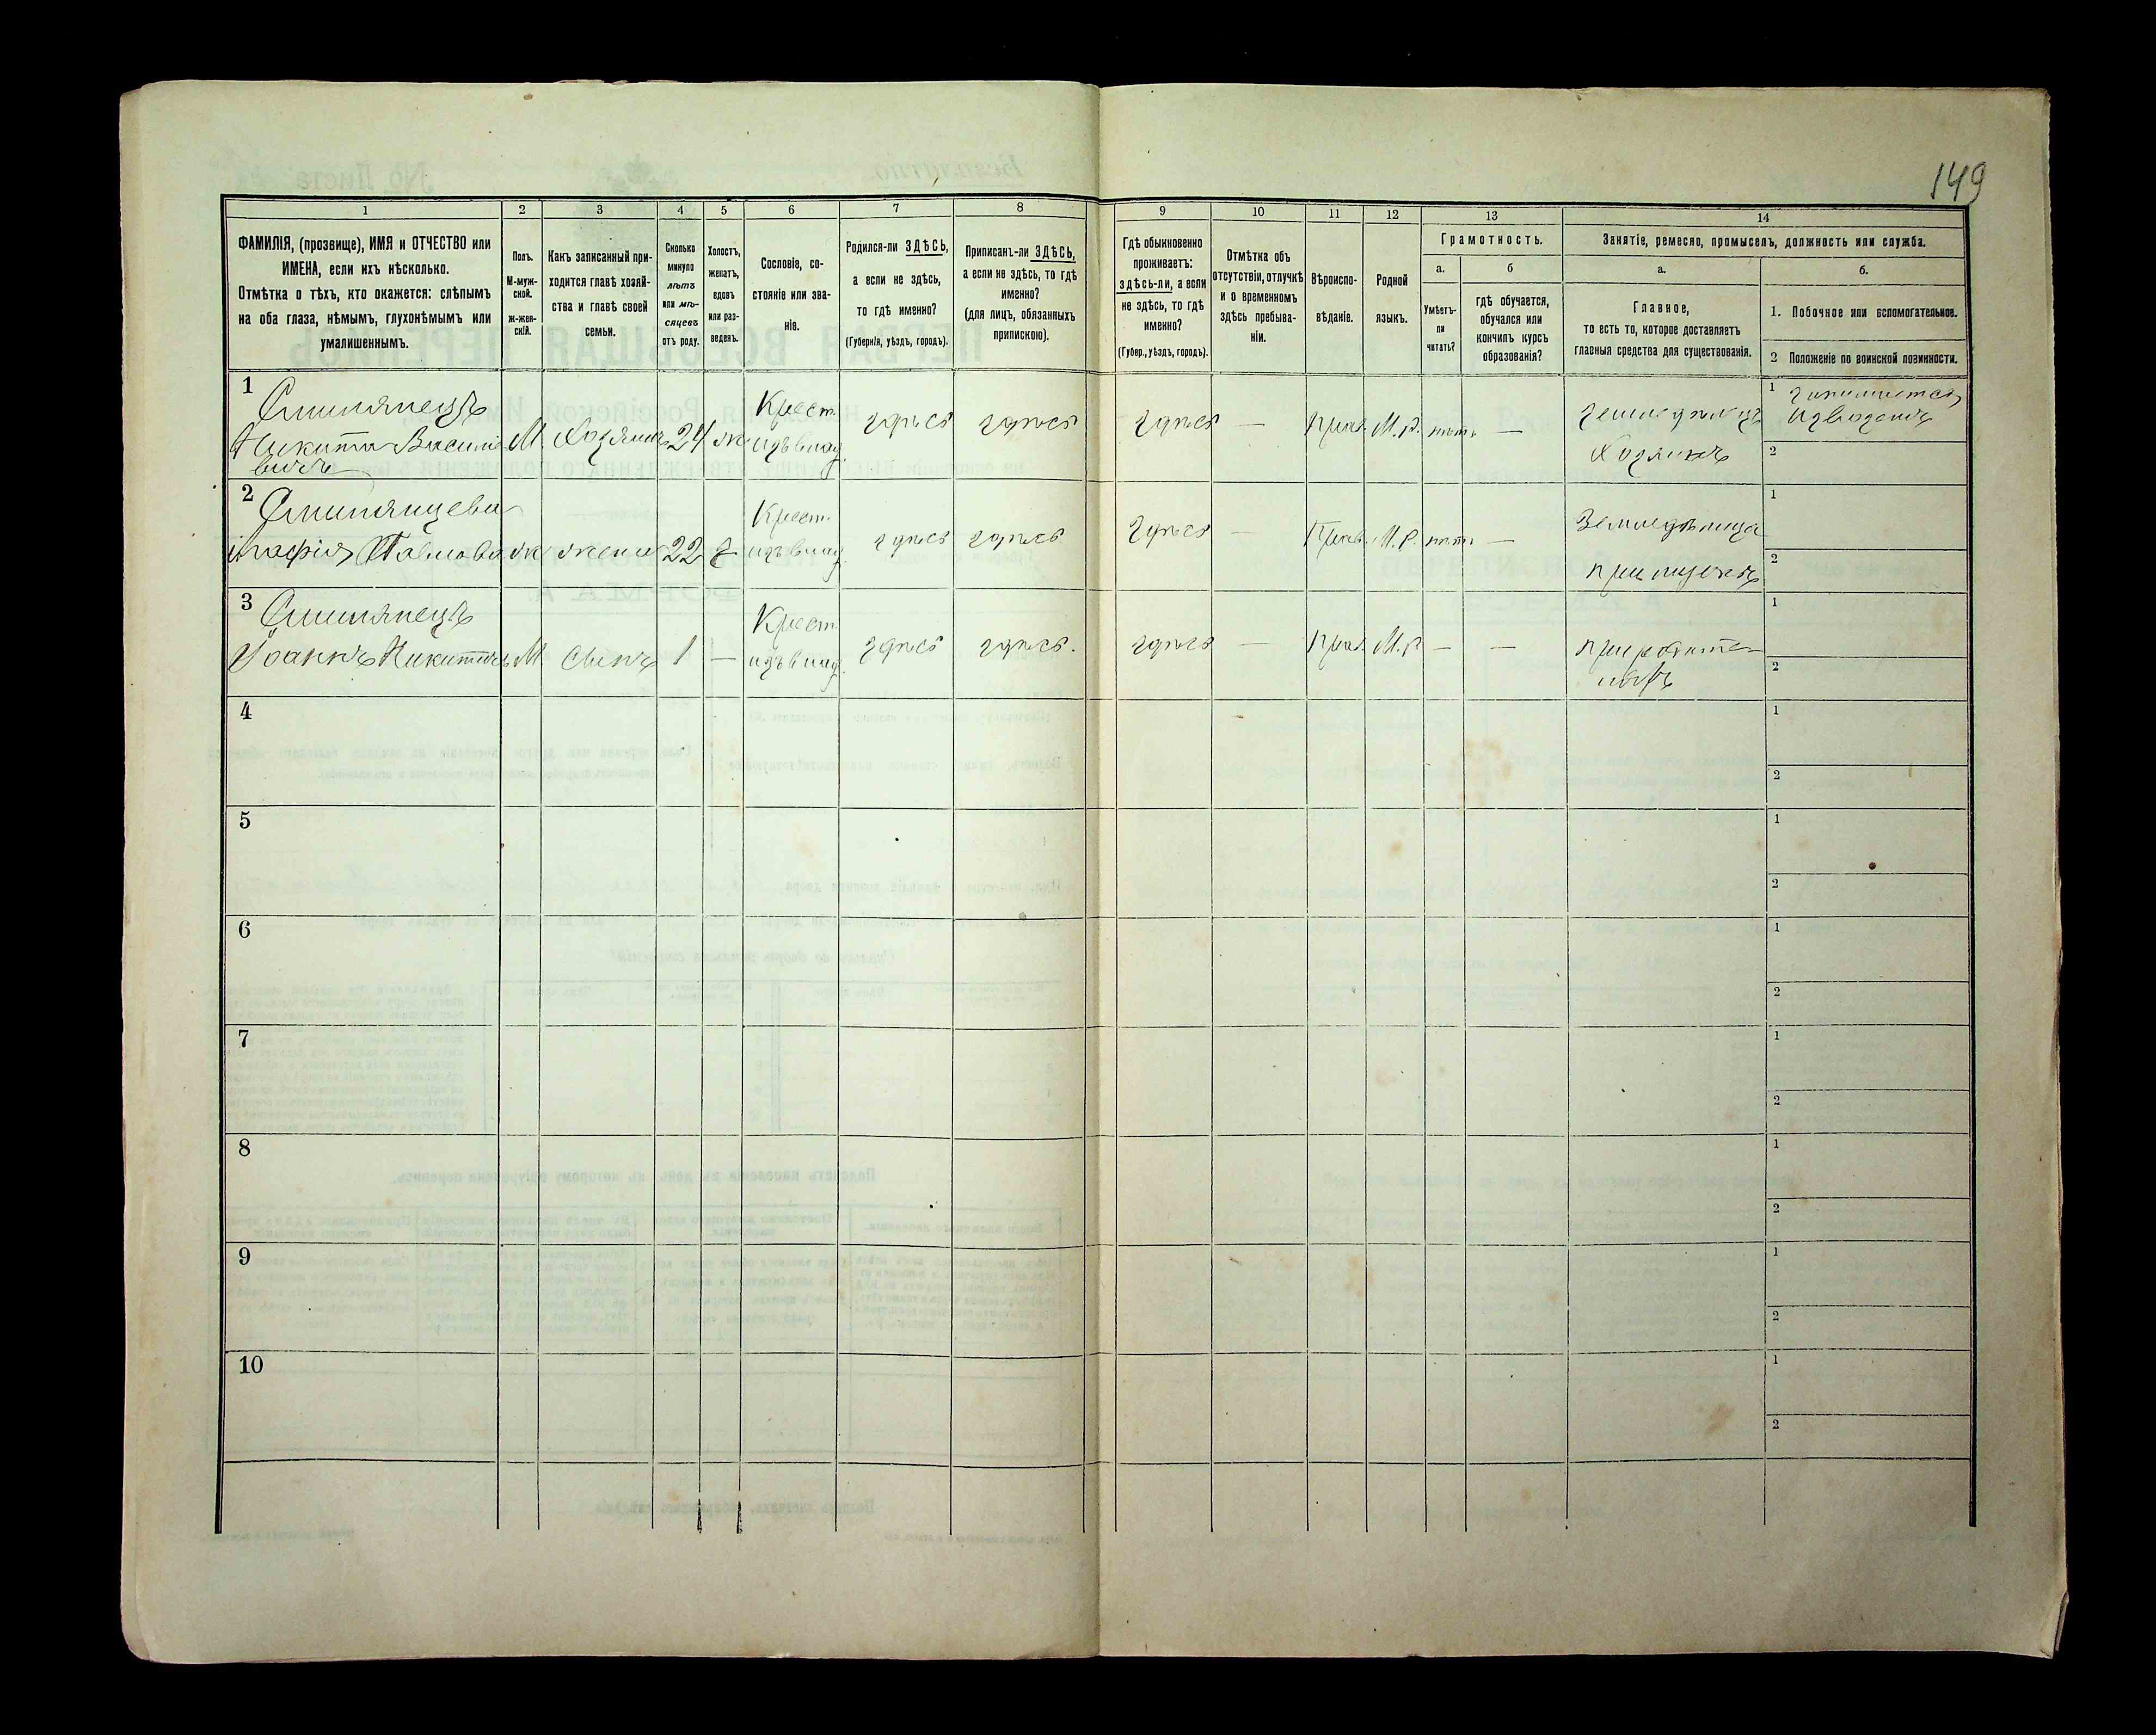 149
1
2
3
4
5
6
7
8
9
10
11
12
13
14
ФАМИЛІЯ, (прозвище), ИМЯ и ОТЧЕСТВО или
ИМЕНА, если ихъ нѣсколько.
Отмѣтка о тѣхъ, кто окажется: слѣпымъ
на оба глаза, нѣмымъ, глухонѣмымъ или
умалишеннымъ.
Полъ.
М-муж-
ской.
ж-жен-
скій.
Какъ записанный при-
ходится главѣ хозяй-
ства и главѣ своей
семьи.
Сколько
минуло
лѣтъ
или мѣ-
сяцевъ
отъ роду.
Холостъ,
женатъ,
вдовъ
или раз-
веденъ.
Сословіе, со-
стояніе или зва-
ніе.
Родился-ли ЗДѢСЬ,
а если не здѣсь,
то гдѣ именно?
(Губернія, уѣздъ, городъ).
Приписанъ-ли ЗДѢСЬ,
а если не здѣсь, то гдѣ
именно?
(для лицъ, обязанныхъ
припискою).
Гдѣ обыкновенно
проживаетъ:
здѣсь-ли, а если
не здѣсь, то гдѣ
именно?
(Губер., уѣздъ, городъ).
Отмѣтка объ
отсутствіи, отлучкѣ
и о временномъ
здѣсь пребыва-
ніи.
Вѣроиспо-
вѣданіе.
Родной
языкъ.
Грамотность.
а.
б
Умѣетъ-
ли
читать?
гдѣ обучается,
обучался или
кончилъ курсъ
образованія?
Занятіе, ремесло, промыселъ, должность или служба.
а.
б.
Главное,
то есть то, которое доставляетъ
главныя средства для существованія.
1. Побочное или вспомогательное.
2 Положеніе по воинской повинности.
1
Никита Василіе
вичъ
М.
Хозяинъ
24
ж
Крест.
изъ влад.
здѣсь
здѣсь
здѣсь
—
Прав.
М.Р.
нѣтъ
—
земледѣлецъ
Хозяинъ
1 занимается
извозомъ
2
2
Павлова
ж
жена
22
Крест.
изъ влад.
здѣсь
здѣсь
здѣсь
—
Прав.
М.Р.
нѣтъ
—
Земледѣлица
при мужѣ
1
2
3
Іоаннъ Никитичъ
М
сынъ
1
—
Крест.
изъ влад.
здѣсь
здѣсь.
здѣсь
—
Прав.
М.Р
—
—
при родите-
ляхъ
1
2
4
1
2
5
1
2
6
1
2
7
1
2
8
1
2
9
1
2
10
1
2